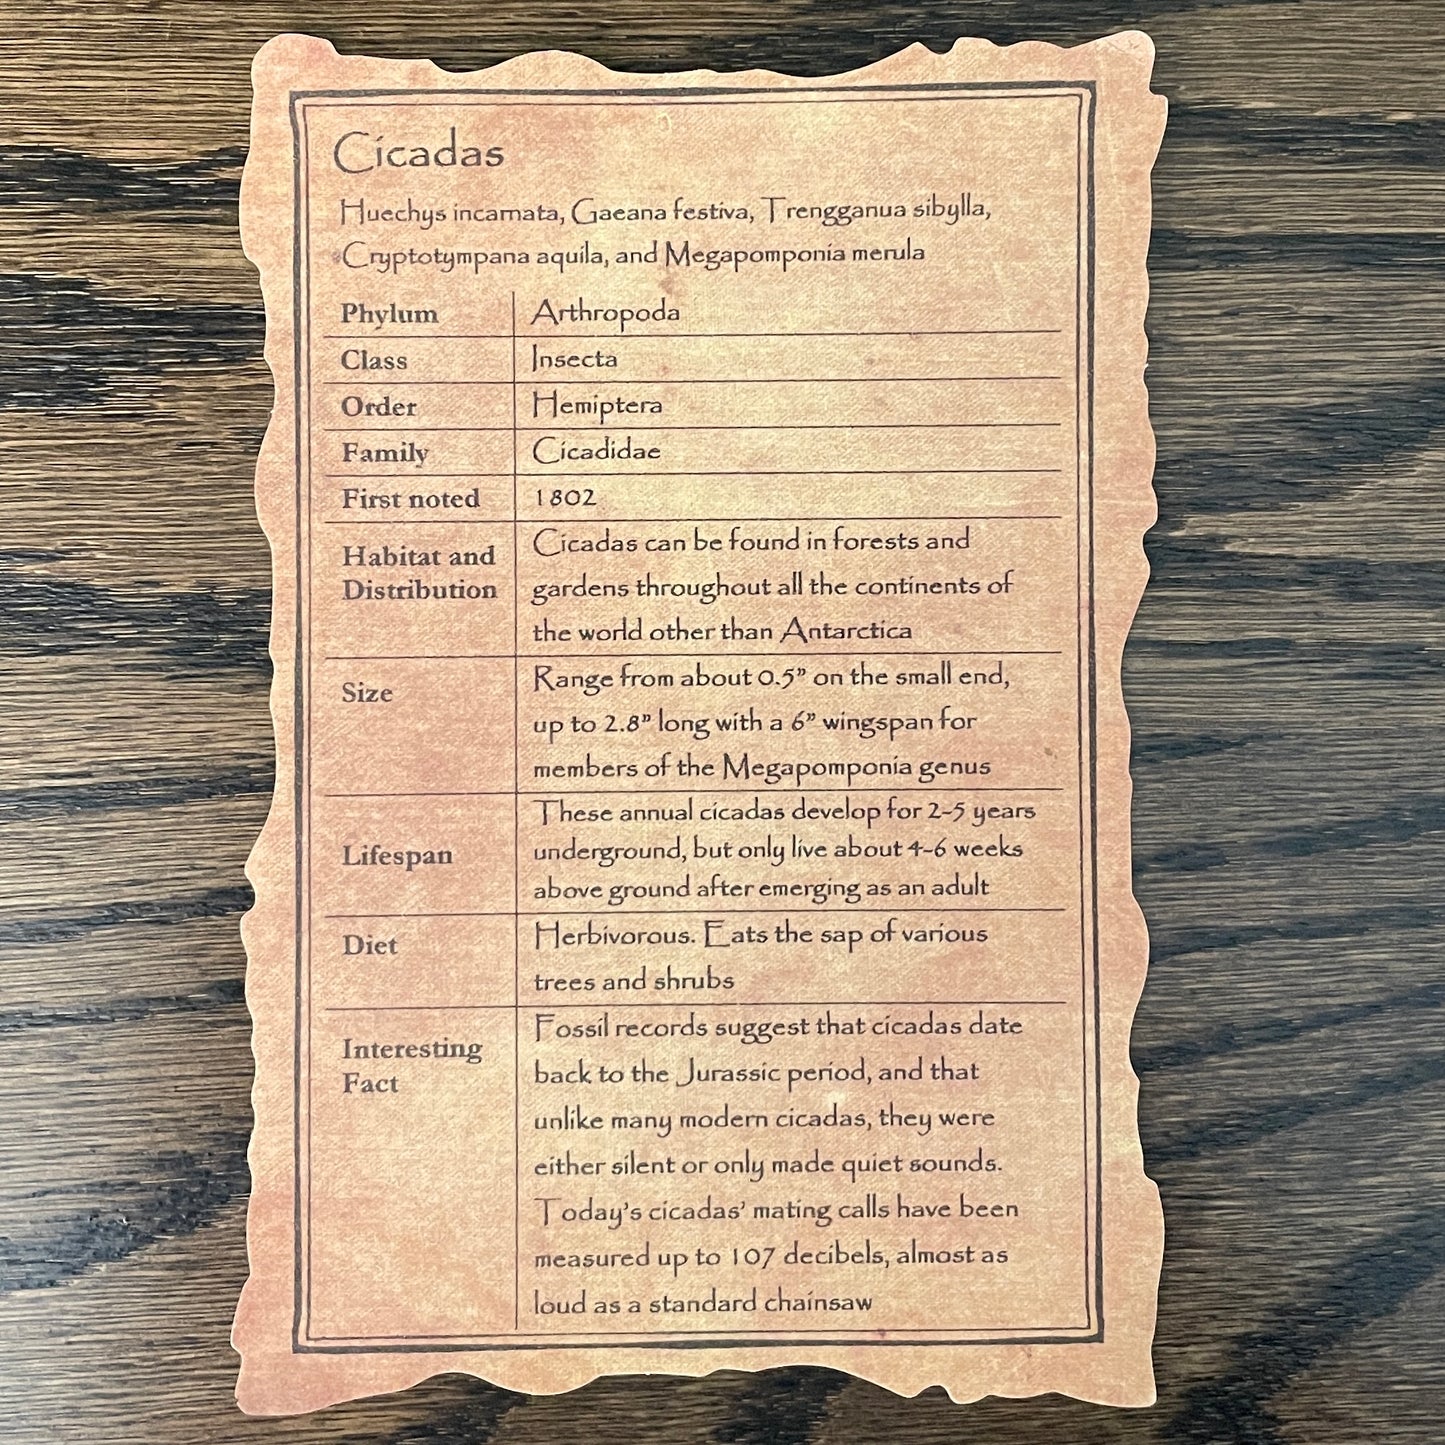 Cicadas
Huechys incarnata, Gaeana festiva, Trengganua sibylla,
Cryptotympana aquila, and Megapomponia merula
Phylum Arthropoda
Class Insecta
Order Hemiptera
Family Cicadidae
First noted 1802
Habitat and Distribution
Cicadas can be found in forests and
gardens throughout all the continents of
the world other than Antarctica
Size
Range from about 0.5” on the small end,
up to 2.8” long with a 6” wingspan for
members of the Megapomponia genus
Lifespan
These annual cicadas develop for 2-5 years
underground, but only live about 4-6 weeks
above ground after emerging as an adult
Diet
Herbivorous. Eats the sap of various
trees and shrubs
Interesting
Fact
Fossil records suggest that cicadas date
back to the Jurassic period, and that
unlike many modern cicadas, they were
either silent or only made quiet sounds.
Today’s cicadas’ mating calls have been
measured up to 107 decibels, almost as
loud as a standard chainsaw